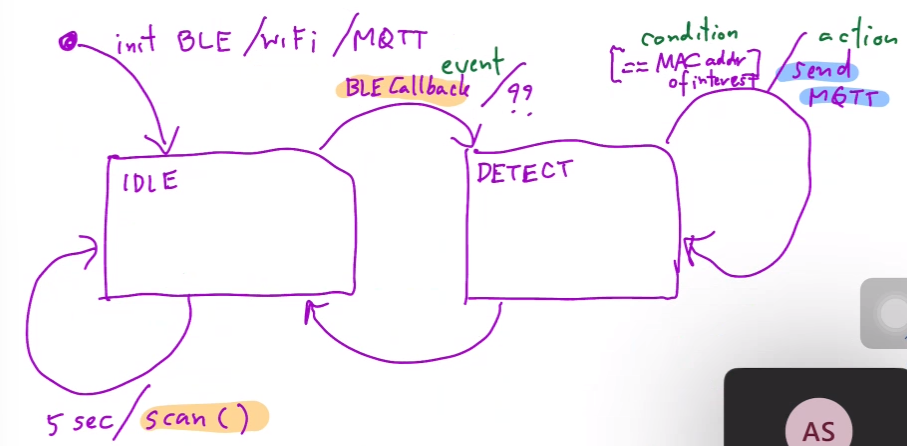 init BLE / WiFi / MQTT
event
BLE Callback / ??
condition
[== MAC addr
of interest]
/ action
send
MQTT
IDLE
DETECT
5 sec / scan ( )
AS